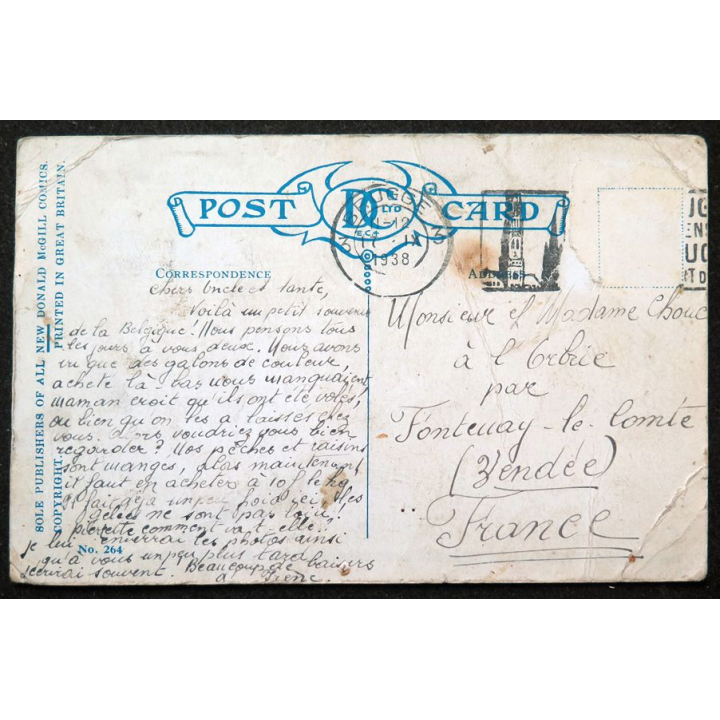 SOLE PUBLISHERS OF ALL NEW DONALD McGILL COMICS.
COPYRIGHT. PRINTED IN GREAT BRITAIN.
POST DC CARD
LTD
1938
CORRESPONDENCE
ADDRESS
Chers Oncle et Tante,
Voilà un petit souvenir
de la Belgique! Nous pensons tous
les jours à vous deux. Nous avons
vu que des galons de couleur,
acheté là-bas nous manquaient
maman croit qu'ils ont été volés,
ou bien qu'on les a laissés chez
vous. Alors voudriez vous bien
regarder? Nos pêches et raisins
sont mangés, alors maintenant
il faut en acheter à 10 f le kg
Il fait déjà un peu froid ici, les
gelées ne sont pas loin!
pierrette comment va t-elle?
je lui enverrai les photos ainsi
No. 264
qu'à vous un peu plus tard
j'écrirai souvent. Beaucoup de baisers
à
Monsieur et Madame Chouc
à l'Orbrie
par
Fontenay-le-Comte
(Vendée)
France